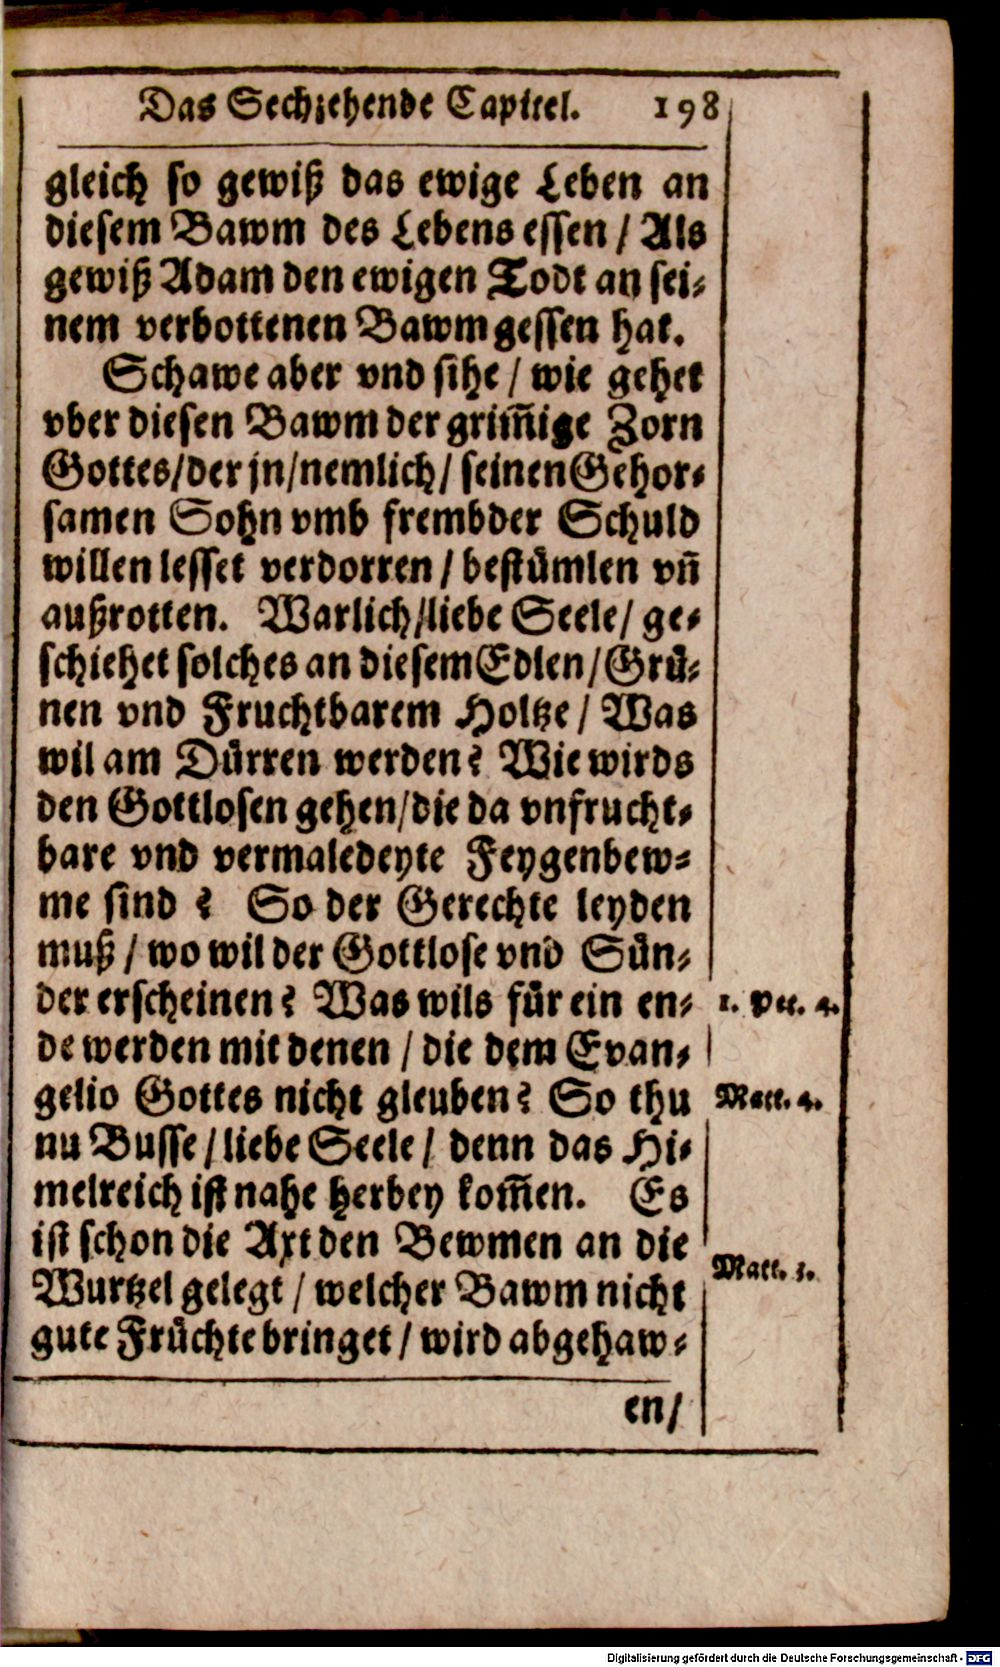 Das Sechzehende Capitel. 198
gleich so gewiß das ewige Leben an
diesem Bawm des Lebens essen / Als
gewiß Adam den ewigen Todt an sei-
nem verbottenen Bawm gessen hat.
Schawe aber vnd sihe / wie gehet
vber diesen Bawm der grim̃ige Zorn
Gottes / der jn / nemlich / seinen Gehor-
samen Sohn vmb frembder Schuld
willen lesset verdorren / bestümlen vñ
außrotten. Warlich / liebe Seele / ge-
schiehet solches an diesem Edlen / Grü-
nen vnd Fruchtbarem Holtze / Was
wil am Dürren werden? Wie wirds
den Gottlosen gehen / die da vnfrucht-
bare vnd vermaledeyte Feygenbew-
me sind? So der Gerechte leyden
muß / wo wil der Gottlose vnd Sün-
der erscheinen? Was wils für ein en-
1. Pet. 4.
de werden mit denen / die dem Evan-
gelio Gottes nicht gleuben? So thu
Matt. 4.
nu Busse / liebe Seele / denn das Hi-
melreich ist nahe herbey kom̃en. Es
ist schon die Axt den Bewmen an die
Matt. 3.
Wurtzel gelegt / welcher Bawm nicht
gute Früchte bringet / wird abgehaw-
en /
Digitalisierung gefördert durch die Deutsche Forschungsgemeinschaft - DFG